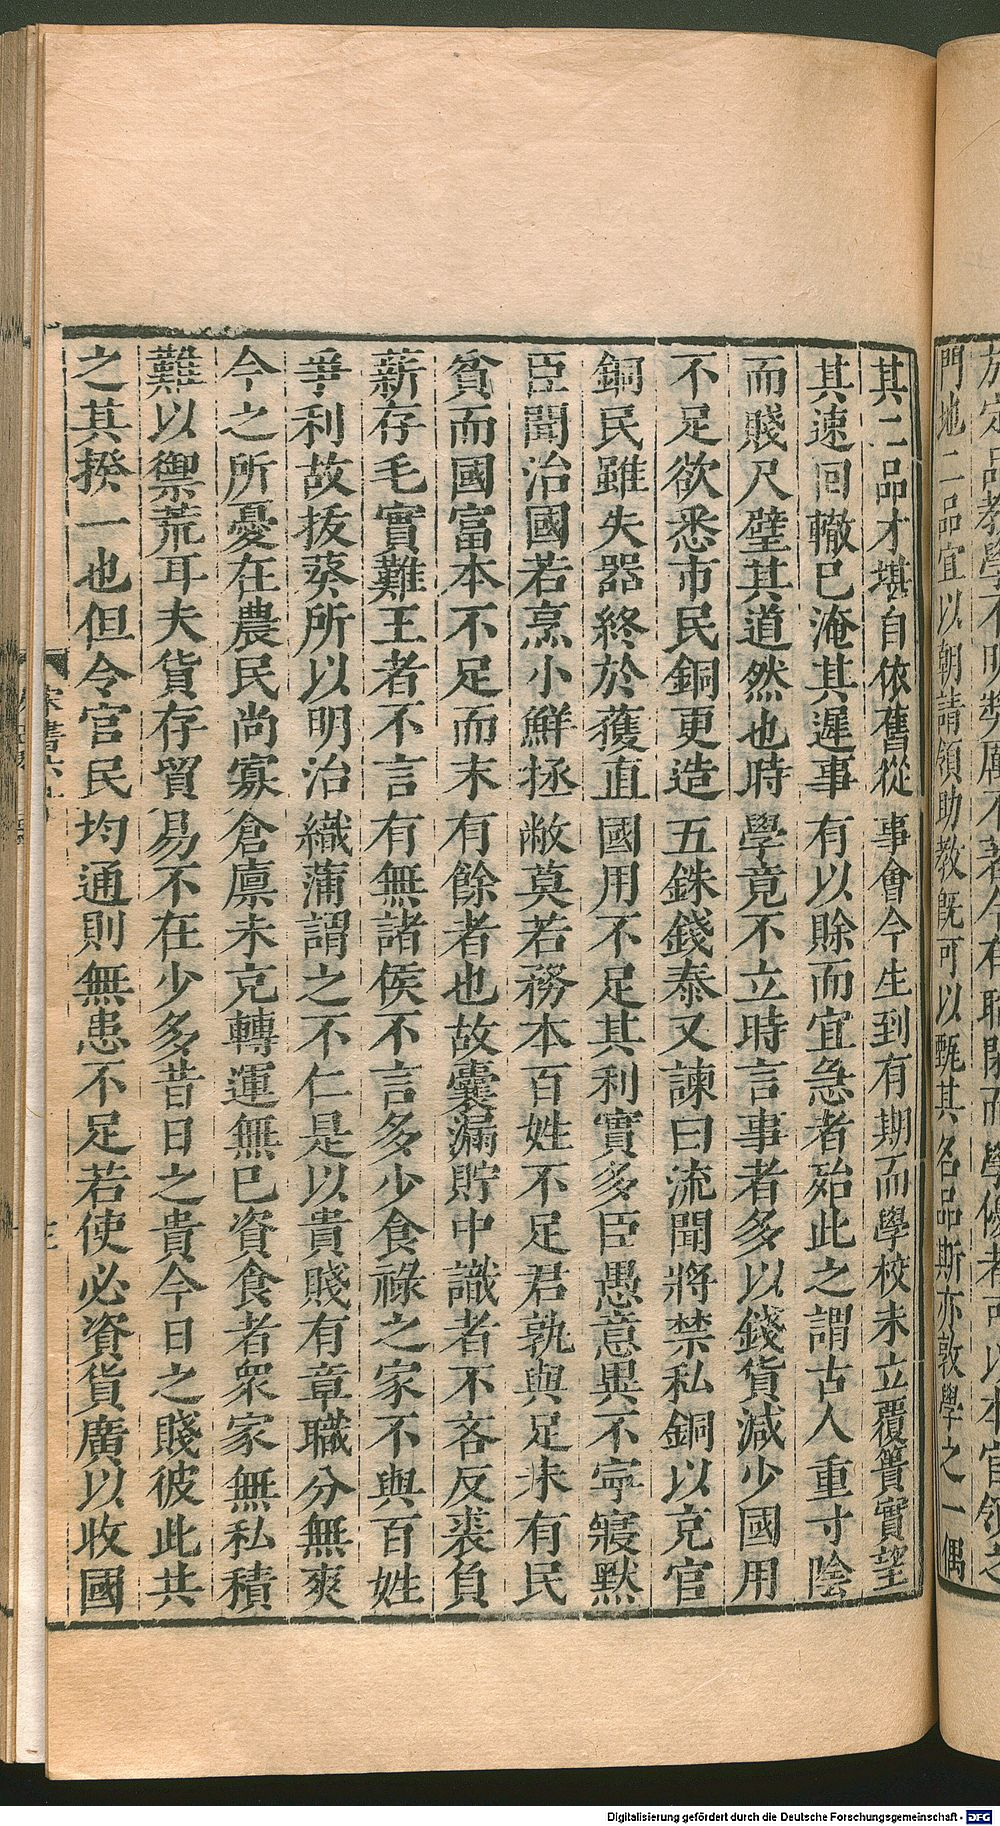 門地二品宜以朝請領助教既可以甄其名品斯亦敦學之一偶
其二品才堪自依舊從事會今生到有期而學校未立覆簣實望
其速回轍已淹其遲事有以賒而宜急者殆此之謂古人重寸陰
而賤尺璧其道然也時學竟不立時言事者多以錢貨減少國用
不足欲悉市民銅更造五銖錢泰又諫曰流聞將禁私銅以克官
銅民雖失器終於獲直國用不足其利實多臣愚意異不寧寢默
臣聞治國若烹小鮮拯敝莫若務本百姓不足君孰與足未有民
貧而國富本不足而末有餘者也故囊漏貯中識者不吝反裘負
薪存毛實難王者不言有無諸侯不言多少食祿之家不與百姓
爭利故拔葵所以明治織蒲謂之不仁是以貴賤有章職分無爽
今之所憂在農民尚寡倉廩未克轉運無已資食者衆家無私積
難以禦荒耳夫貨存貿易不在少多昔日之貴今日之賤彼此共
之其揆一也但令官民均通則無患不足若使必資貨廣以收國
Digitalisierung gefördert durch die Deutsche Forschungsgemeinschaft - DFG